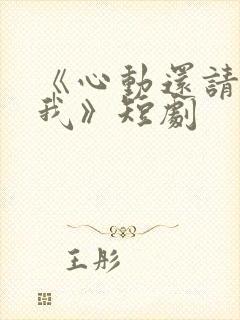 《心動還請
我》短劇
王彤